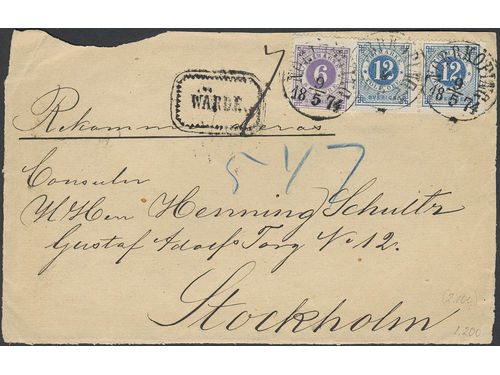 6 12 12
NORRKÖPING
18 5 74
NORRKÖPING
NORRKÖPING
18 5 74
WÄRDE.
Rekommenderas
547
Consuler
Henning Schultz
Gustaf Adolfs Torg No 12.
Stockholm
1.200